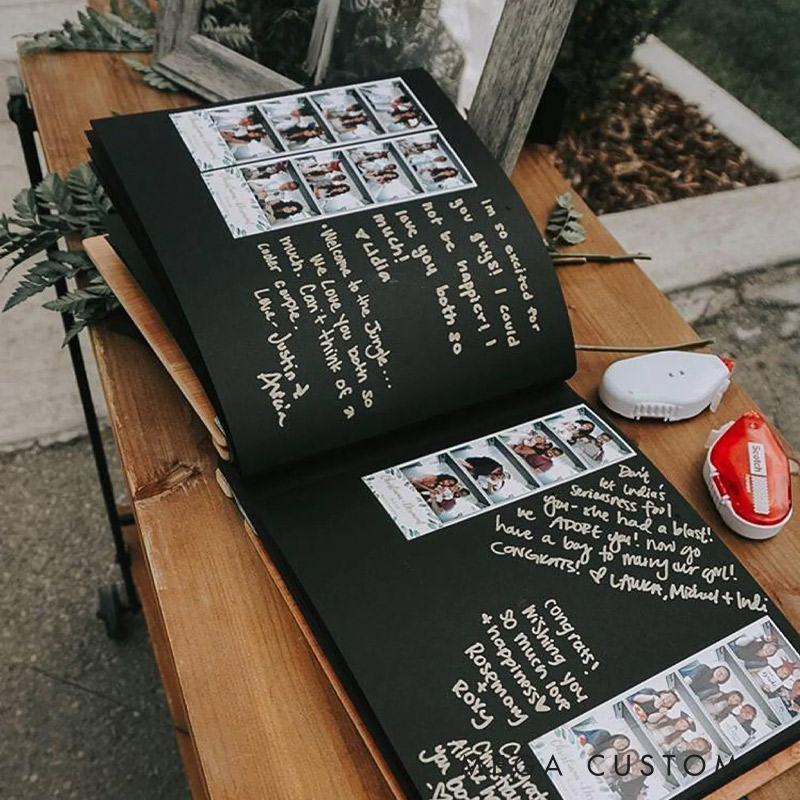 Im so excited for
you guys! I could
not be happier! I
love you both so
much!
♥ Lidia
"Welcome to the Jungle...
We love you both so
much. Can't think of a
Love, Justin +
Alicia
Don't
let India's
seriousness fool
you - she had a blast!
We ADORE you! now go
have a boy to marry our girl!
CONGRATS! ♡ LAURA, Michael + Indi
Congrats!
Wishing you
so much love
+ happiness ♥
Rosemary
+
Roxy
you bo
Scotch
CUSTOM